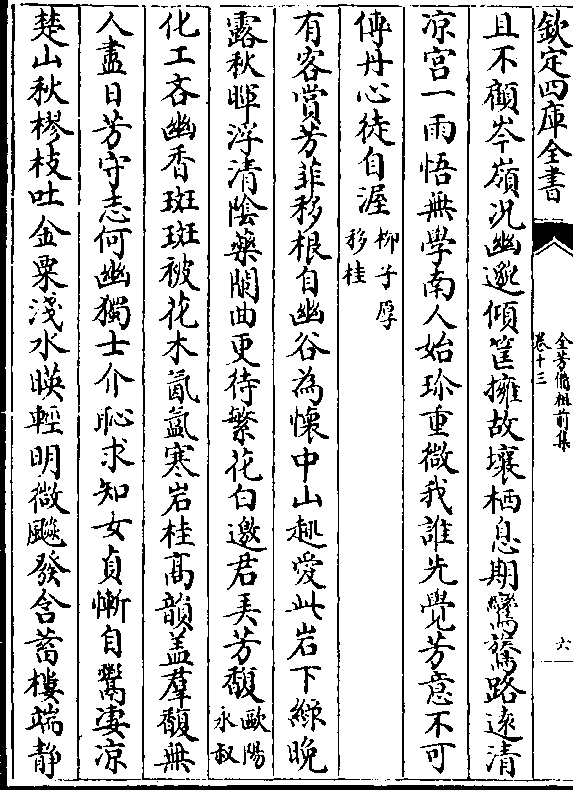 欽定四庫全書
全芳備祖前集
卷十三
六
且不顧岑嶺况幽邃傾筐擁故壤栖息期鸞鷟路逺清
凉宫一雨悟無學南人始珍重微我誰先覺芳意不可
傳丹心徒自渥柳子厚移桂
有客賞芳菲移根自幽谷為懷中山趣愛此岩下緑晚
露秋暉浮清陰藥闌曲更待繁花白邀君弄芳馥歐陽永叔
化工吝幽香斑斑被花木氤氲寒岩桂髙韻盖羣馥無
人盡日芳守志何幽獨士介恥求知女貞慚自鬻凄凉
楚山秋樛枝吐金粟淺水暎輕明微飈發含蓄樓端静